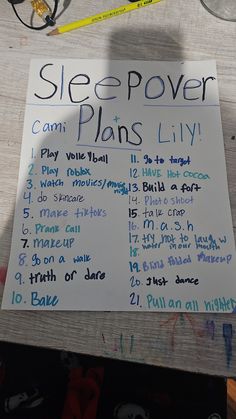 Sleepover
Plans
Cami + Lily!
1. Play volleyball
2. Play roblox
3. watch movies/movie night
4. do skincare
5. make tiktoks
6. Prank call
7. makeup
8. go on a walk
9. truth or dare
10. Bake
11. go to target
12. HAVE Hot cocoa
13. Build a fort
14. Photo shoot
15. talk crap
16. m.a.s.h
17. try not to laugh w/
18. water in our mouth
19. Blind folded Makeup
20. Just dance
21. Pull an all nighter